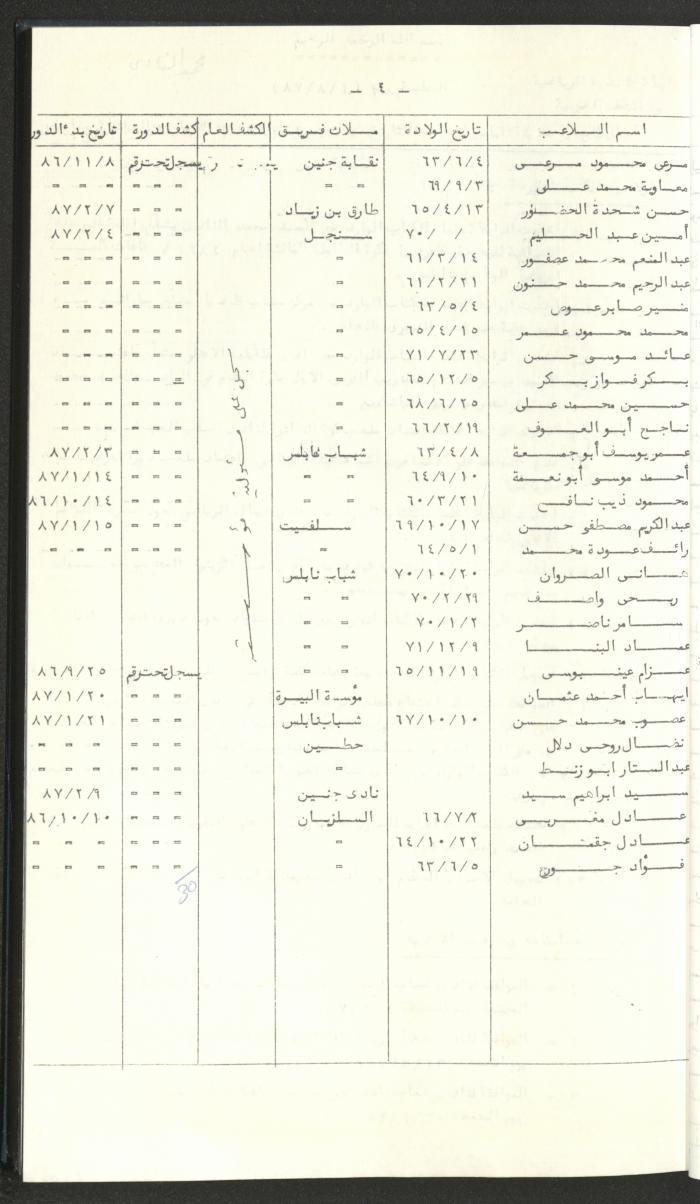 ـ ٤ ـ
اسم اللاعب تاريخ الولادة ملاك فريق الكشف العام كشف الدورة تاريخ بدء الدور
مرعى محمود مرعى ٦٣/٦/٤ نقابة جنين يسجل تحت رقم ٨٦/١١/٨
معاوية محمد على ٦٩/٩/٣ = = = = = = = =
حسن شحدة الحفلؤر ٦٥/٤/١٣ طارق بن زياد = = = ٨٧/٢/٧
أمين عبد الحليم ٧٠/ / سنجل = = = ٨٧/٢/٤
عبد المنعم محمد عصفور ٦١/٣/١٤ = = = = = = =
عبد الرحيم محمد حنون ٦١/٢/٢١ = = = = = = =
منير صابر عوض ٦٣/٥/٤ = = = = = = =
محمد محمود عمر ٦٥/٤/١٥ = = = = = = =
عائد موسى حسن ٧١/٧/٢٣ = = = = = = =
بكر فواز بكر ٦٥/١٢/٥ = = = = = = =
حسين محمد على ٦٨/٦/٢٥ = = = = = = =
ناجح أبو العوف ٦٦/٢/١٩ = = = = = = =
عمر يوسف أبو جمعة ٦٣/٤/٨ شباب نابلس = = = ٨٧/٢/٣
أحمد موسى أبو نعمة ٦٤/٩/١٠ = = = = = ٨٧/١/١٤
محمود ذيب نافع ٦٠/٣/٢١ = = = = = ٨٦/١٠/١٤
عبد الكريم مصطفى حسن ٦٩/١٠/١٧ سلفيت = = = ٨٧/١/١٥
رائف عودة محمد ٦٤/٥/١ = = = = = = =
هانى الصروان ٧٠/١٠/٢٠ شباب نابلس
ربحى واصف ٧٠/٢/٢٩ = =
سامر ناصر ٧٠/١/٢ = =
عماد البنا ٧١/١٢/٩ = =
عزام عينبوسى ٦٥/١١/١٩ = = يسجل تحت رقم ٨٦/٩/٢٥
ايهاب أحمد عثمان مؤسسة البيرة = = = ٨٧/١/٢٠
عصوب محمد حسن ٦٧/١٠/١٠ شباب نابلس = = = ٨٧/١/٢١
نضال روحى دلال حطين = = = = = =
عبد الستار ابو زنط = = = = = = =
سيد ابراهيم سيد نادى جنين = = = ٨٧/٢/٩
عادل مغربى ٦٦/٧/٢ السلزيان = = = ٨٦/١٠/١٠
عادل جقمان ٦٤/١٠/٢٢ = = = = = = =
فؤاد جنون ٦٣/٦/٥ = = = = = = =
30